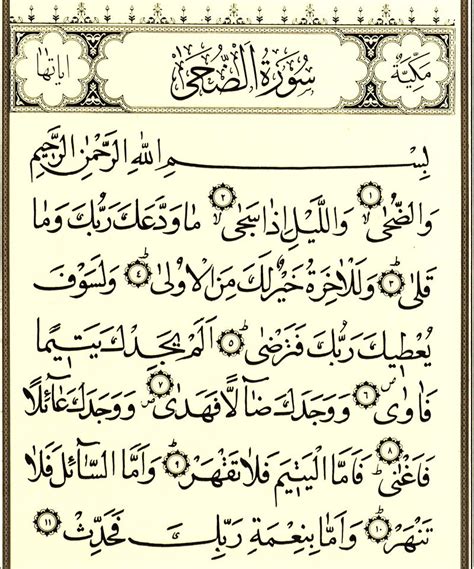 مَكِّيَّةٌ سُورَةُ الضُّحٰى اٰيَاتُهَا ١١
بِسْمِ اللّٰهِ الرَّحْمٰنِ الرَّحِيمِ
وَالضُّحٰىۙ ١ وَالَّيْلِ اِذَا سَجٰىۙ ٢ مَا وَدَّعَكَ رَبُّكَ وَمَا
قَلٰىۜ ٣ وَلَلْاٰخِرَةُ خَيْرٌ لَكَ مِنَ الْاُو۫لٰىۜ ٤ وَلَسَوْفَ
يُعْطِيكَ رَبُّكَ فَتَرْضٰىۜ ٥ اَلَمْ يَجِدْكَ يَتِيمًا
فَاٰوٰىۖ ٦ وَوَجَدَكَ ضَٓالًّا فَهَدٰىۖ ٧ وَوَجَدَكَ عَٓائِلًا
فَاَغْنٰىۜ ٨ فَاَمَّا الْيَتِيمَ فَلَا تَقْهَرْۜ ٩ وَاَمَّا السَّٓائِلَ فَلَا
تَنْهَرْۜ ١٠ وَاَمَّا بِنِعْمَةِ رَبِّكَ فَحَدِّثْ ١١